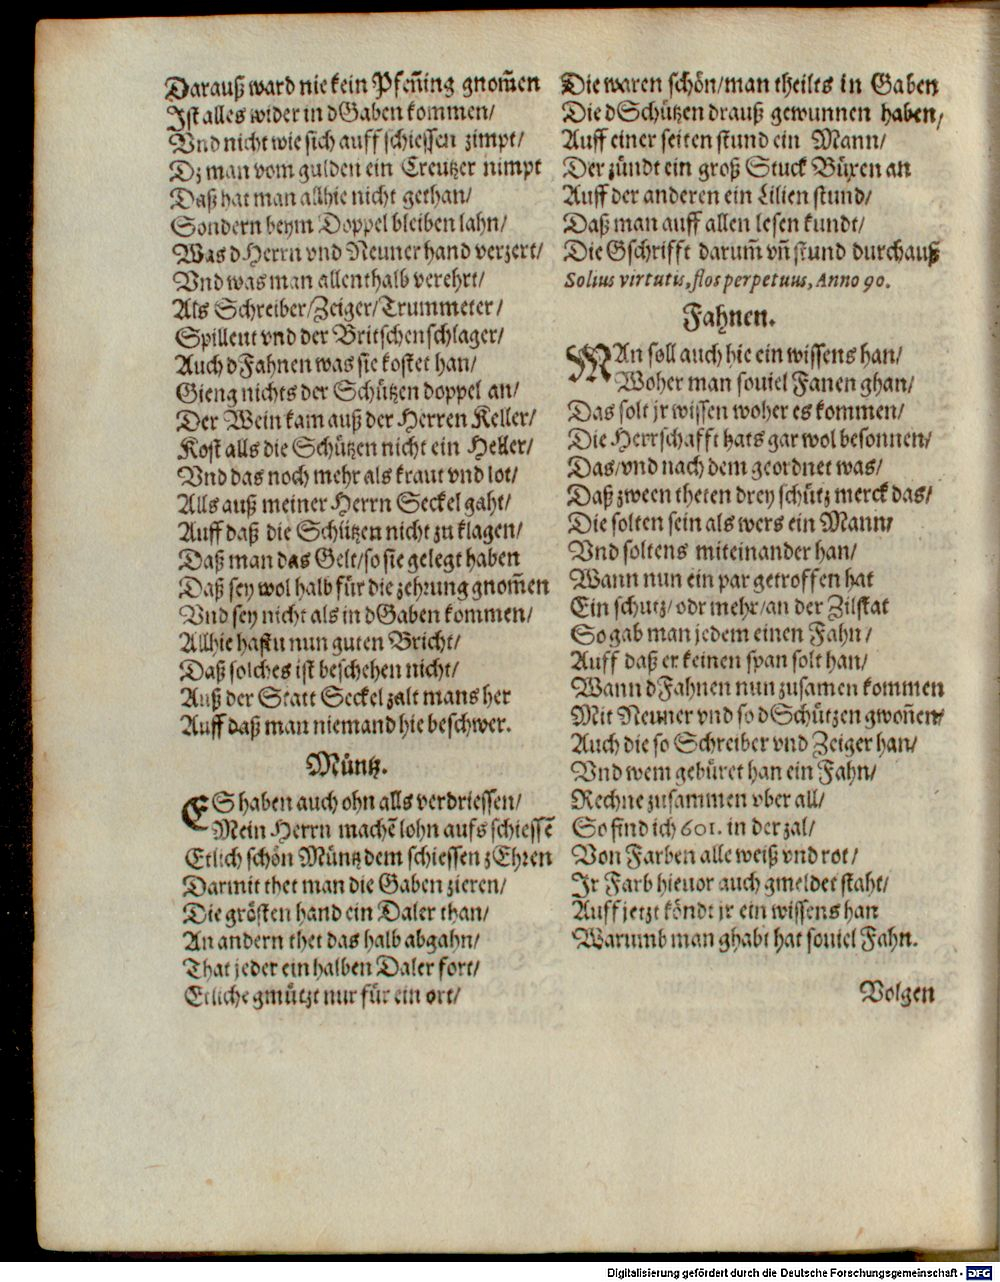 Darauß ward nie kein Pfen̄ing gnom̄en
Ist alles wider in dGaben kommen/
Vnd nicht wie sich auff schiessen zimpt/
Dz man vom gulden ein Creutzer nimpt
Daß hat man allhie nicht gethan/
Sondern beym Doppel bleiben lahn/
Was d Herrn vnd Neuner hand verzert/
Vnd was man allenthalb verehrt/
Als Schreiber/Zeiger/Trummeter/
Spilleut vnd der Britschenschlager/
Auch d Fahnen was sie kostet han/
Gieng nichts der Schützen doppel an/
Der Wein kam auß der Herren Keller/
Kost alls die Schützen nicht ein Heller/
Vnd das noch mehr als kraut vnd lot/
Alls auß meiner Herrn Seckel gaht/
Auff daß die Schützen nicht zu klagen/
Daß man das Gelt/so sie gelegt haben
Daß sey wol halb für die zehrung gnom̄en
Vnd sey nicht als in dGaben kommen/
Allhie hastu nun guten Bricht/
Daß solches ist beschehen nicht/
Auß der Statt Seckel zalt mans her
Auff daß man niemand hie beschwer.
Müntz.
ES haben auch ohn alls verdriessen/
Mein Herrn machē lohn aufs schiessē
Etlich schön Müntz dem schiessen zEhren
Darmit thet man die Gaben zieren/
Die grösten hand ein Daler than/
An andern thet das halb abgahn/
That jeder ein halben Daler fort/
Etliche gmützt nur für ein ort/
Die waren schön/man theilts in Gaben
Die dSchützen drauß gewunnen haben/
Auff einer seiten stund ein Mann/
Der zündt ein groß Stuck Büxen an
Auff der anderen ein Lilien stund/
Daß man auff allen lesen kundt/
Die Gschrifft darum̄ vn̄ stund durchauß
Solius virtutis, flos perpetuus, Anno 90.
Fahnen.
MAn soll auch hie ein wissens han/
Woher man souiel Fanen ghan/
Das solt jr wissen woher es kommen/
Die Herrschafft hats gar wol besonnen/
Das/vnd nach dem geordnet was/
Daß zween theten drey schütz merck das/
Die solten sein als wers ein Mann/
Vnd soltens miteinander han/
Wann nun ein par getroffen hat
Ein schutz/odr mehr/an der Zilstat
So gab man jedem einen Fahn/
Auff daß er keinen span solt han/
Wann dFahnen nun zusamen kommen
Mit Neuner vnd so dSchützen gwon̄en/
Auch die so Schreiber vnd Zeiger han/
Vnd wem gebüret han ein Fahn/
Rechne zusammen vber all/
So find ich 601. in der zal/
Von Farben alle weiß vnd rot/
Ir Farb hieuor auch gmeldet staht/
Auff jetzt köndt jr ein wissens han
Warumb man ghabt hat souiel Fahn.
Volgen
Digitalisierung gefördert durch die Deutsche Forschungsgemeinschaft - DFG